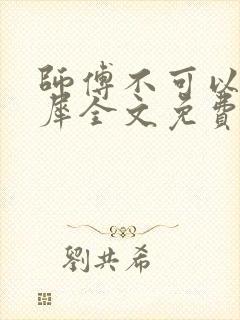 師傅不可以
犀全文免費
劉共希